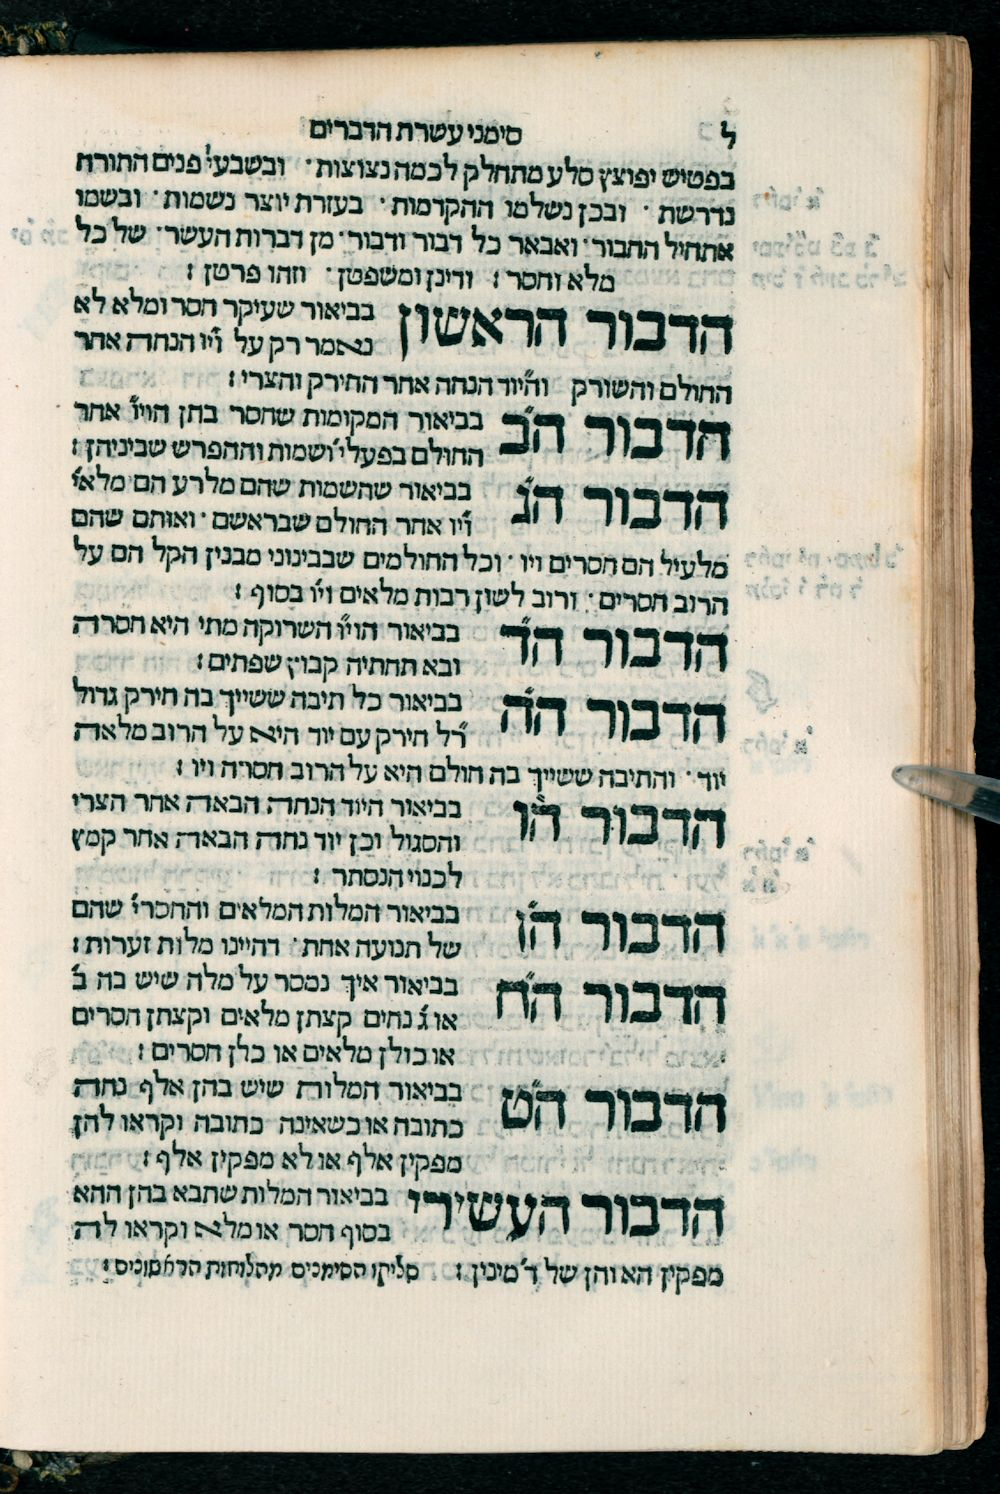 ל סימני עשרת הדברים
בפטיש יפוצץ סלע מתחלק לכמה נצוצות · ובשבעי' פנים התורה
נדרשת · ובכן נשלמו ההקדמות · בעזרת יוצר נשמות · ובשמו
אתחיל החבור · ואבאר כל דבור ודבור · מן דברות העשר · של כל
מלא וחסר : ודינן ומשפטן · וזהו פרטן :
הדבור הראשון בביאור שעיקר חסר ומלא לא
נאמר רק על ו"יו הנחה אחר
החולם והשורק והיוד הנחה אחר החירק והצרי :
הדבור ה"ב בביאור המקומות שחסר בהן הוי"ו אחר
החולם בפעלי' ושמות וההפרש שביניהן :
הדבור ה"ג בביאור שהשמות שהם מלרע הם מלאי'
ו"יו אחר החולם שבראשם · ואותם שהם
מלעיל הם חסרים ויו · וכל החולמים שבבינוני מבנין הקל הם על
הרוב חסרים · ורוב לשון רבות מלאים וי"ו בסוף :
הדבור ה"ד בביאור הוי"ו השרוקה מתי היא חסרה
ובא תחתיה קבוץ שפתים :
הדבור ה"ה בביאור כל תיבה ששייך בה חירק גדול
ר"ל חירק עם יוד היא על הרוב מלאה
יוד · והתיבה ששייך בה חולם היא על הרוב חסרה ויו :
הדבור ה"ו בביאור היוד הנחה הבאה אחר הצרי
והסגול וכן יוד נחה הבאה אחר קמץ
לכנוי הנסתר :
הדבור ה"ז בביאור המלות המלאים והחסרי' שהם
של תנועה אחת · דהיינו מלות זערות :
הדבור ה"ח בביאור איך נמסר על מלה שיש בה ב'
או ג' נחים קצתן מלאים וקצתן חסרים
או כולן מלאים או כלן חסרים :
הדבור ה"ט בביאור המלות שיש בהן אלף נחה
כתובה או כשאינה כתובה וקראו להן
מפקין אלף או לא מפקין אלף :
הדבור העשירי בביאור המלות שתבא בהן ההא
בסוף חסר או מלא וקראו לה
מפקין הא והן של ד' מינין : סליקו הסימנים מהלוחות הראשונים :